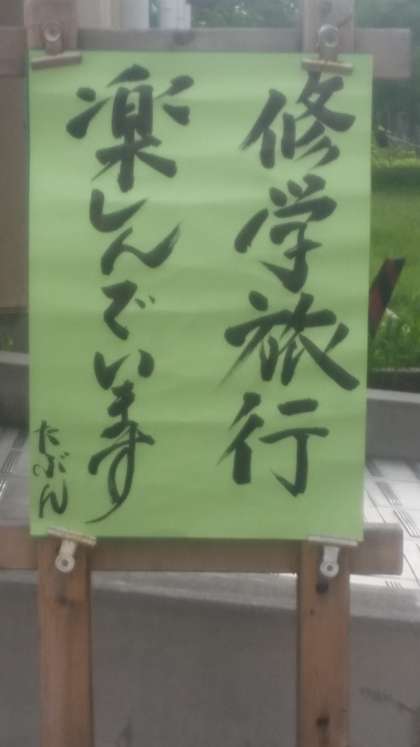 修学旅行
楽しんでいます
たぶん